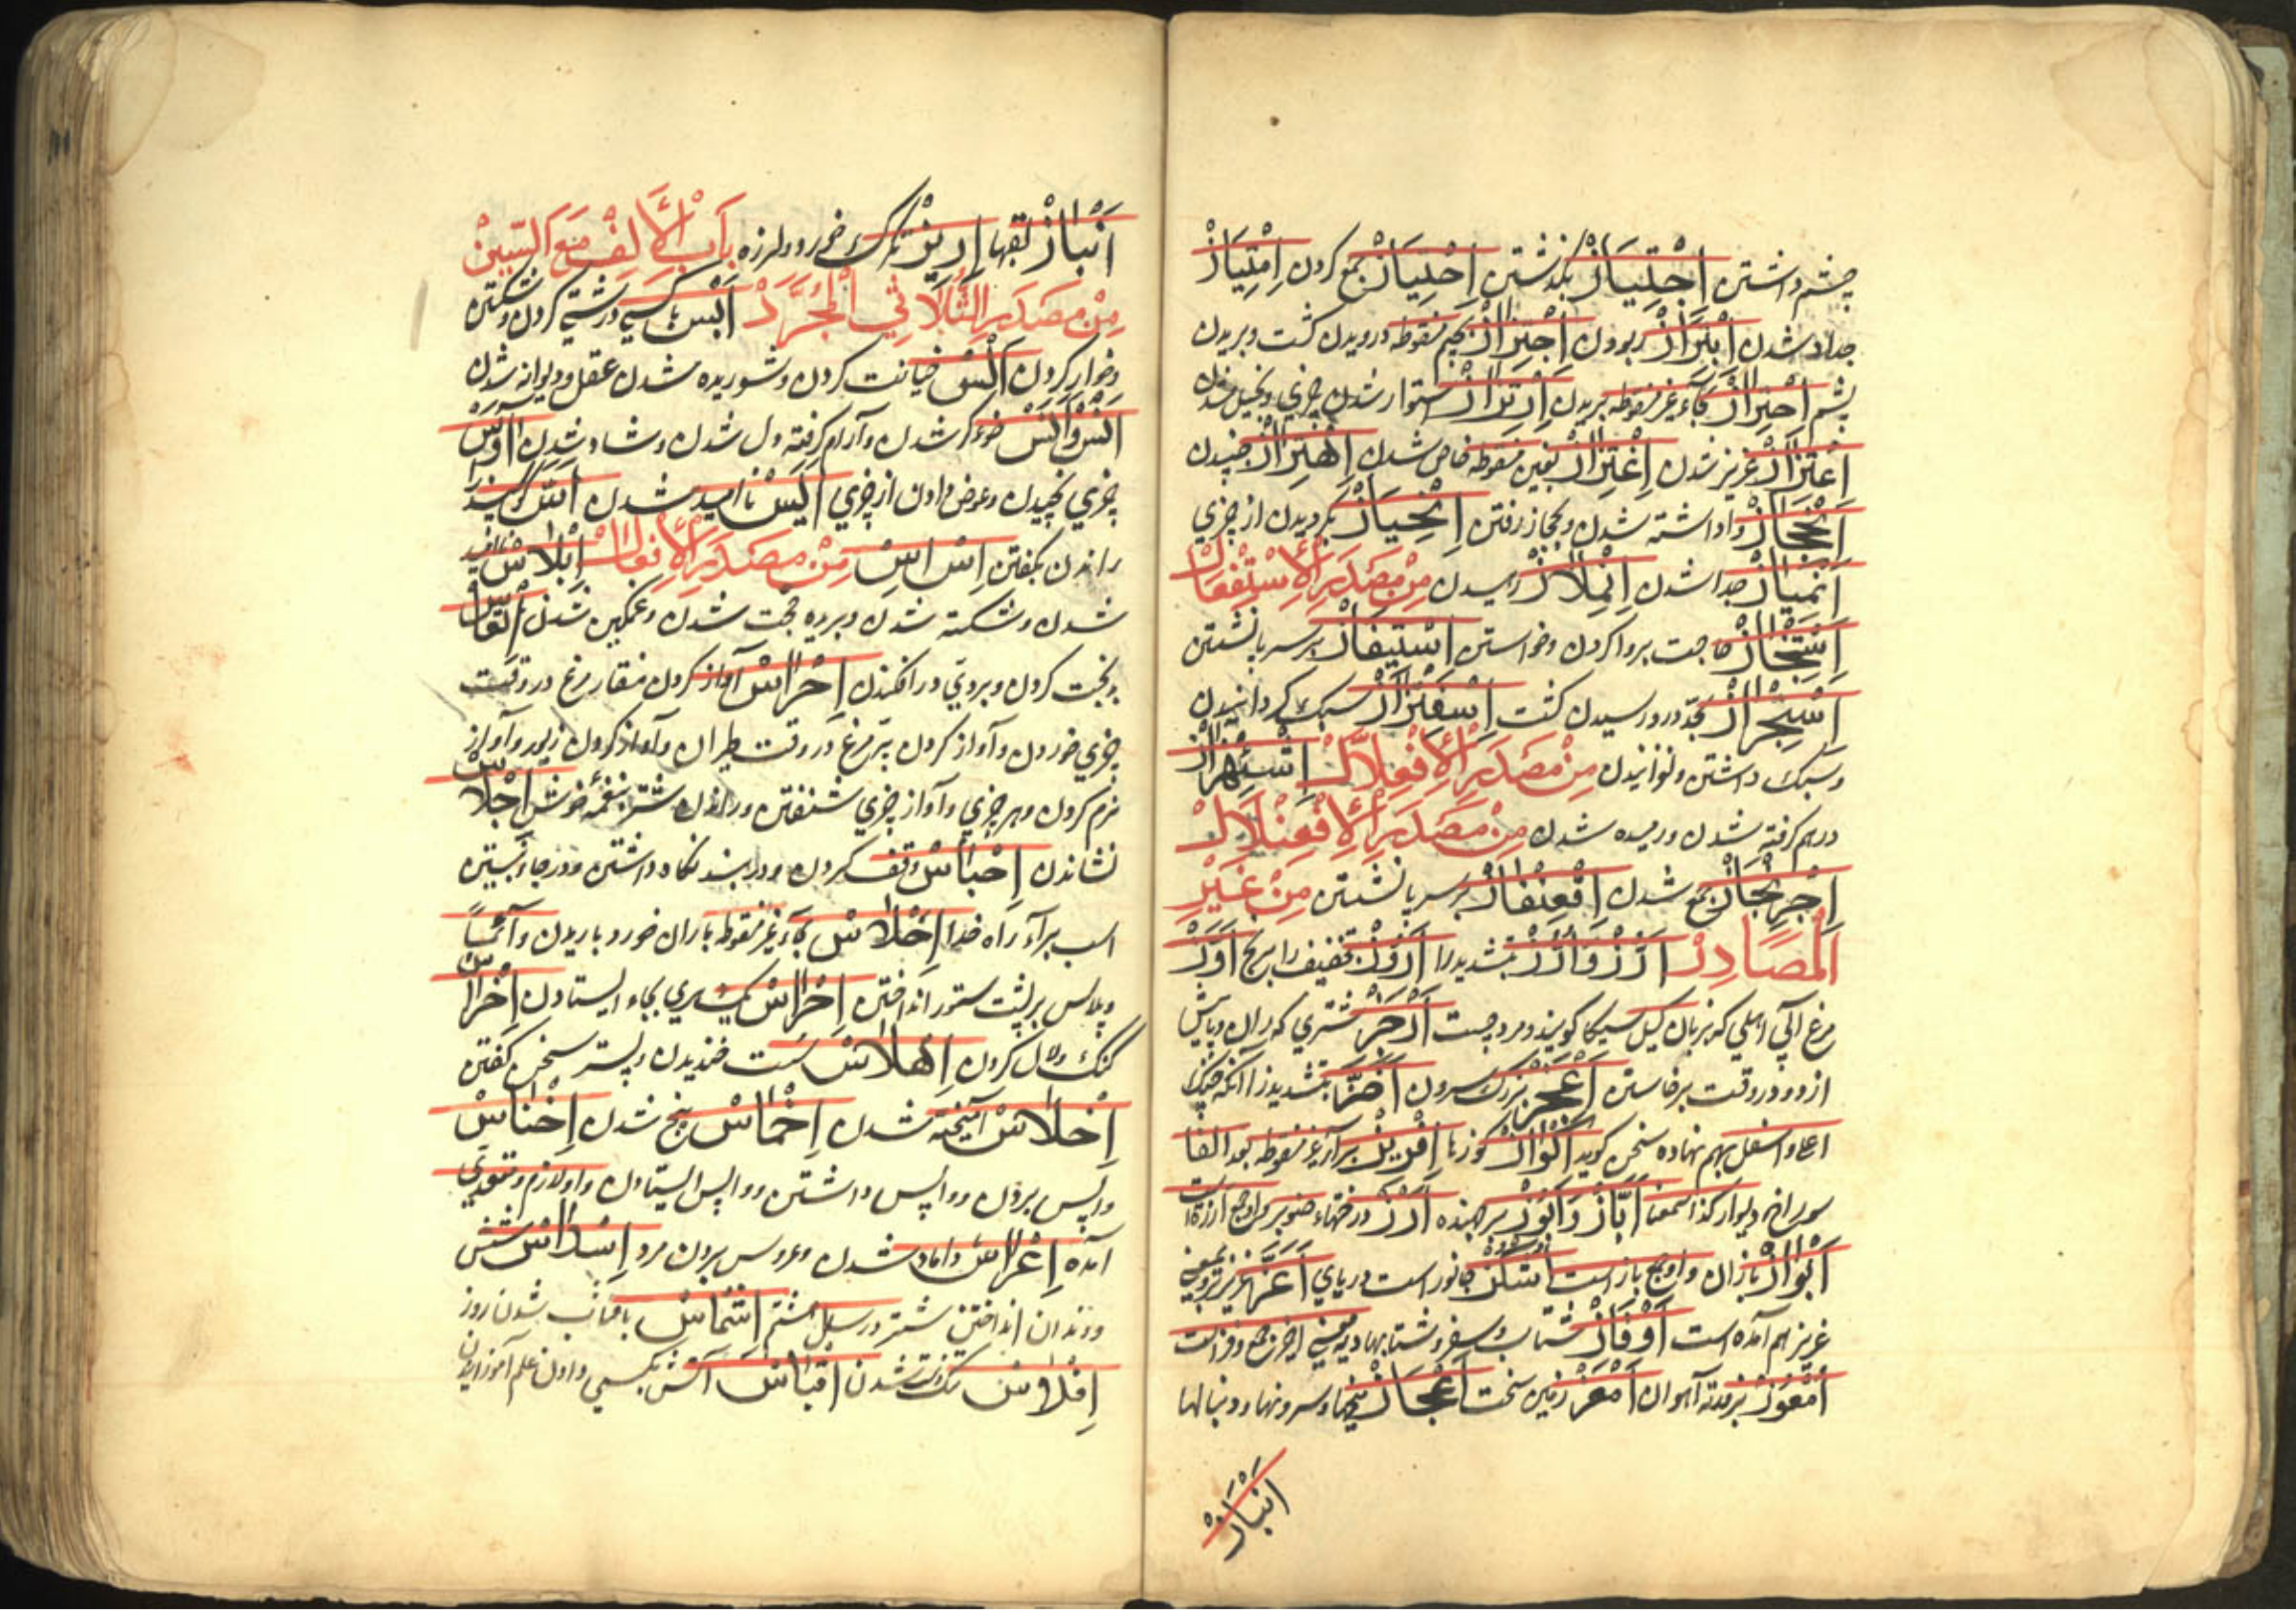 چشم داشتن اِجْتِیَازْ بگذشتن اِحْتِیَازْ جمع کردن اِمْتِیَازْ
جدا شدن اِبْتِزَازْ ربودن اِجْتِزَازْ بجیم منقوطه درویدن کشت و بریدن
پشم اِحْتِزَازْ بحاء غیر منقوطه بریدن اِرْتِزَازْ استوار شدن چیزی و بخیل شدن
اِعْتِزَازْ عزیز شدن اِغْتِزَازْ بغین منقوطه خاص شدن اِهْتِزَازْ جنبیدن
اِنْحِجَازْ وا داشته شدن و بحجاز رفتن اِنْحِیَازْ بگردیدن از چیزی
اِنْمِیَازْ جدا شدن اِنْمِلَازْ رهیدن مِنْ مَصْدَرِ الْاِسْتِفْعَالْ
اِسْتِنْجَازْ حاجت بروا کردن و خواستن اِسْتِیفَازْ بر سر پا نشستن
اِسْتِجْزَازْ بحد درو رسیدن کشت اِسْتِفْزَازْ سبک گردانیدن
و سبک داشتن و لغزانیدن مِنْ مَصْدَرِ الْاِفْعِلَّالْ
درهم گرفته شدن و رمیده شدن مِنْ مَصْدَرِ الْاِفْعِنْلَالْ
اِجْرِنْجَازْ جمع شدن اِقْعِنْفَازْ بر سر پا نشستن مِنْ غَیْرِ
الْمَصَادِرْ اَرُزْ وَ اُرُزّْ بتشدید را بتخفیف را برنج اِوَزّْ
مرغ آبی اهلی که بزبان گیل سیکا گویند و مرد چست اَرْجَزْ شتری که ران و پایش
ازدو در وقت برخاستن اَعْجَزْ بزرگ سرون اَضَزّْ بتشدید زا آنکه حنک
اعلا و اسفل بهم نهاده سخن گوید اَکْوَازْ کوزها اِفْرِیزْ برا غیر منقوطه بعد الفا
دیوار کذا سمعنا اَبَّازْ وَ اَبُوزْ برجهنده اَرْزْ درختهاء صنوبر
اَبْوَازْ بازان جانور است دریای اَعَزّْ عزیزتر و بمعنی
عزیز هم آمده است اَوْفَازْ شتاب و سفر و شتابها
اُمْعُوزْ اَمْعَزْ زمین سخت اَعْجَازْ بیخها و سرونها و دنبالها
اَنْبَازْ
اَنْبَازْ لقبها بَابُ الْاَلِفْ مَعَ السِّینْ
مِنْ مَصْدَرِ الثُّلَاثِی الْمُجَرَّدْ اَبْسْ با کسی درشتی کردن و شکستن
و خوار کردن اَلْسْ خیانت کردن و شوریده شدن عقل و دیوانه شدن
اُنْسْ وَ اَنَسْ خوگر شدن و آرام گرفته دل شدن و شاد شدن اَوْسْ
چیزی بخشیدن و عوض دادن از چیزی اَیْسْ ناامید شدن اَسّْ گوسفند را
راندن بگفتن اِسْ اِسْ مِنْ مَصْدَرِ الْاِفْعَالْ اِبْلَاسْ ناامید
شدن و شکسته شدن و بریده حجت شدن و غمگین شدن اِتْعَاسْ
بدبخت کردن و بروی در افکندن اِجْرَاسْ آواز کردن منقار مرغ در وقت
چیزی خوردن و آواز کردن پر مرغ در وقت طیران و آواز کردن زیور و آواز
نرم کردن و هر چیزی و آواز چیزی شنفتن و راندن شتر بنغمه خوش اِجْلَاسْ
نشاندن اِحْبَاسْ وقف کردن و در بند نگاه داشتن و در جا بستن
اسب برا راه خدا اِحْلَاسْ بحاء غیر منقوطه باران خورد باریدن و
و پلاس بر پشت ستور انداختن اِحْرَاسْ یکسری بجاء ایستادن اِخْرَاسْ
گنگ و لال کردن اِهْلَاسْ سست خندیدن و پستر سخن گفتن
اِخْلَاسْ آمیخته شدن اِخْمَاسْ پنج شدن اِخْنَاسْ
واپس بردن و واپس داشتن و واپس ایستادن و او لازم و متعدی
آمده اِعْرَاسْ داماد شدن و عروس بردن مرد اِسْدَاسْ شش
و دندان انداختن شتر در سال هشتم اِشْمَاسْ با آفتاب شدن روز
اِفْلَاسْ تنگدست شدن اِقْبَاسْ آتش بکسی دادن علم آموزانیدن